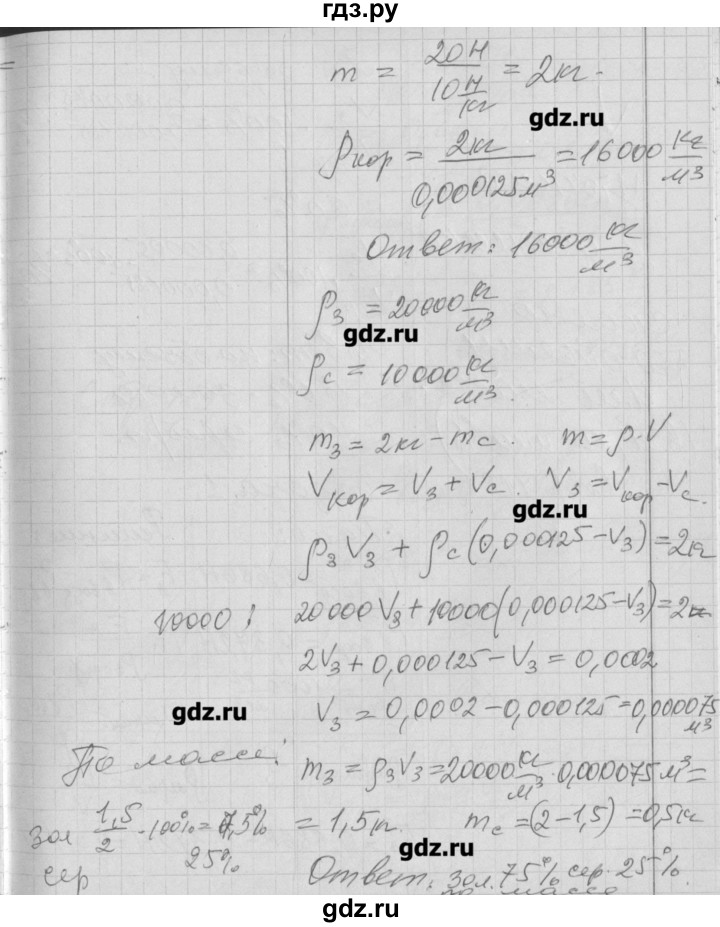 гдз.ру
m = 20Н / 10 Н/кг = 2кг.
gdz.ru
ρкор = 2кг / 0,000125м³ = 16000 кг/м³
Ответ: 16000 кг/м³
ρз = 20000 кг/м³
gdz.ru
ρс = 10000 кг/м³.
mз = 2кг - mс. m = ρ·V
Vкор = Vз + Vс. Vз = Vкор - Vс.
gdz.ru
ρзVз + ρс(0,000125 - Vз) = 2кг
10000 : 20000Vз + 10000(0,000125 - Vз) = 2кг
2Vз + 0,000125 - Vз = 0,0002
gdz.ru
Vз = 0,0002 - 0,000125 = 0,000075 м³
По массе:
mз = ρзVз = 20000 кг/м³ · 0,000075 м³ =
зол 1,5/2 · 100% = 7,5% = 1,5кг. mс = (2 - 1,5) = 0,5кг
сер 25%
gdz.ru
Ответ: зол. 75% сер. 25%.
по массе
gdz.ru